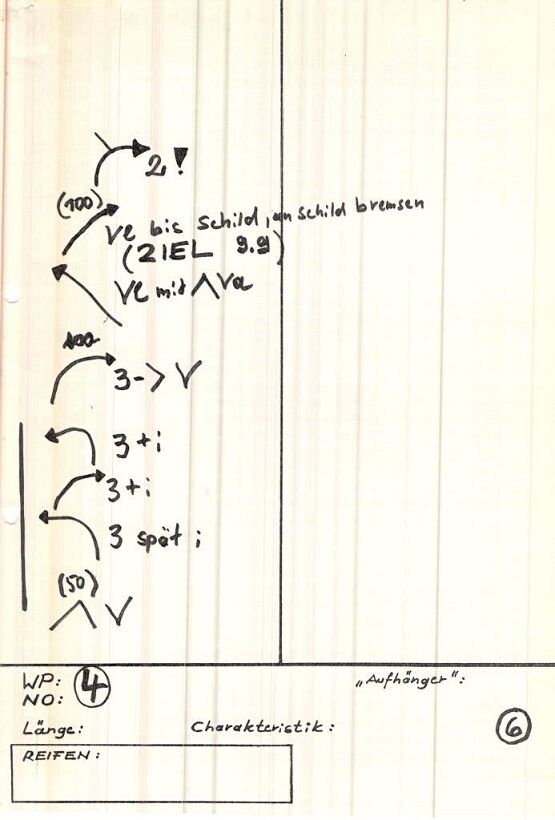 2!
(100)
ve bis Schild, an Schild bremsen
(ZIEL 9.9)
ve mit ∧ va
100
3-> V
3+i
3+i
3 spät i
(50)
∧ V
WP: 4
NO:
„Aufhänger":
Länge:
Charakteristik:
6
REIFEN: